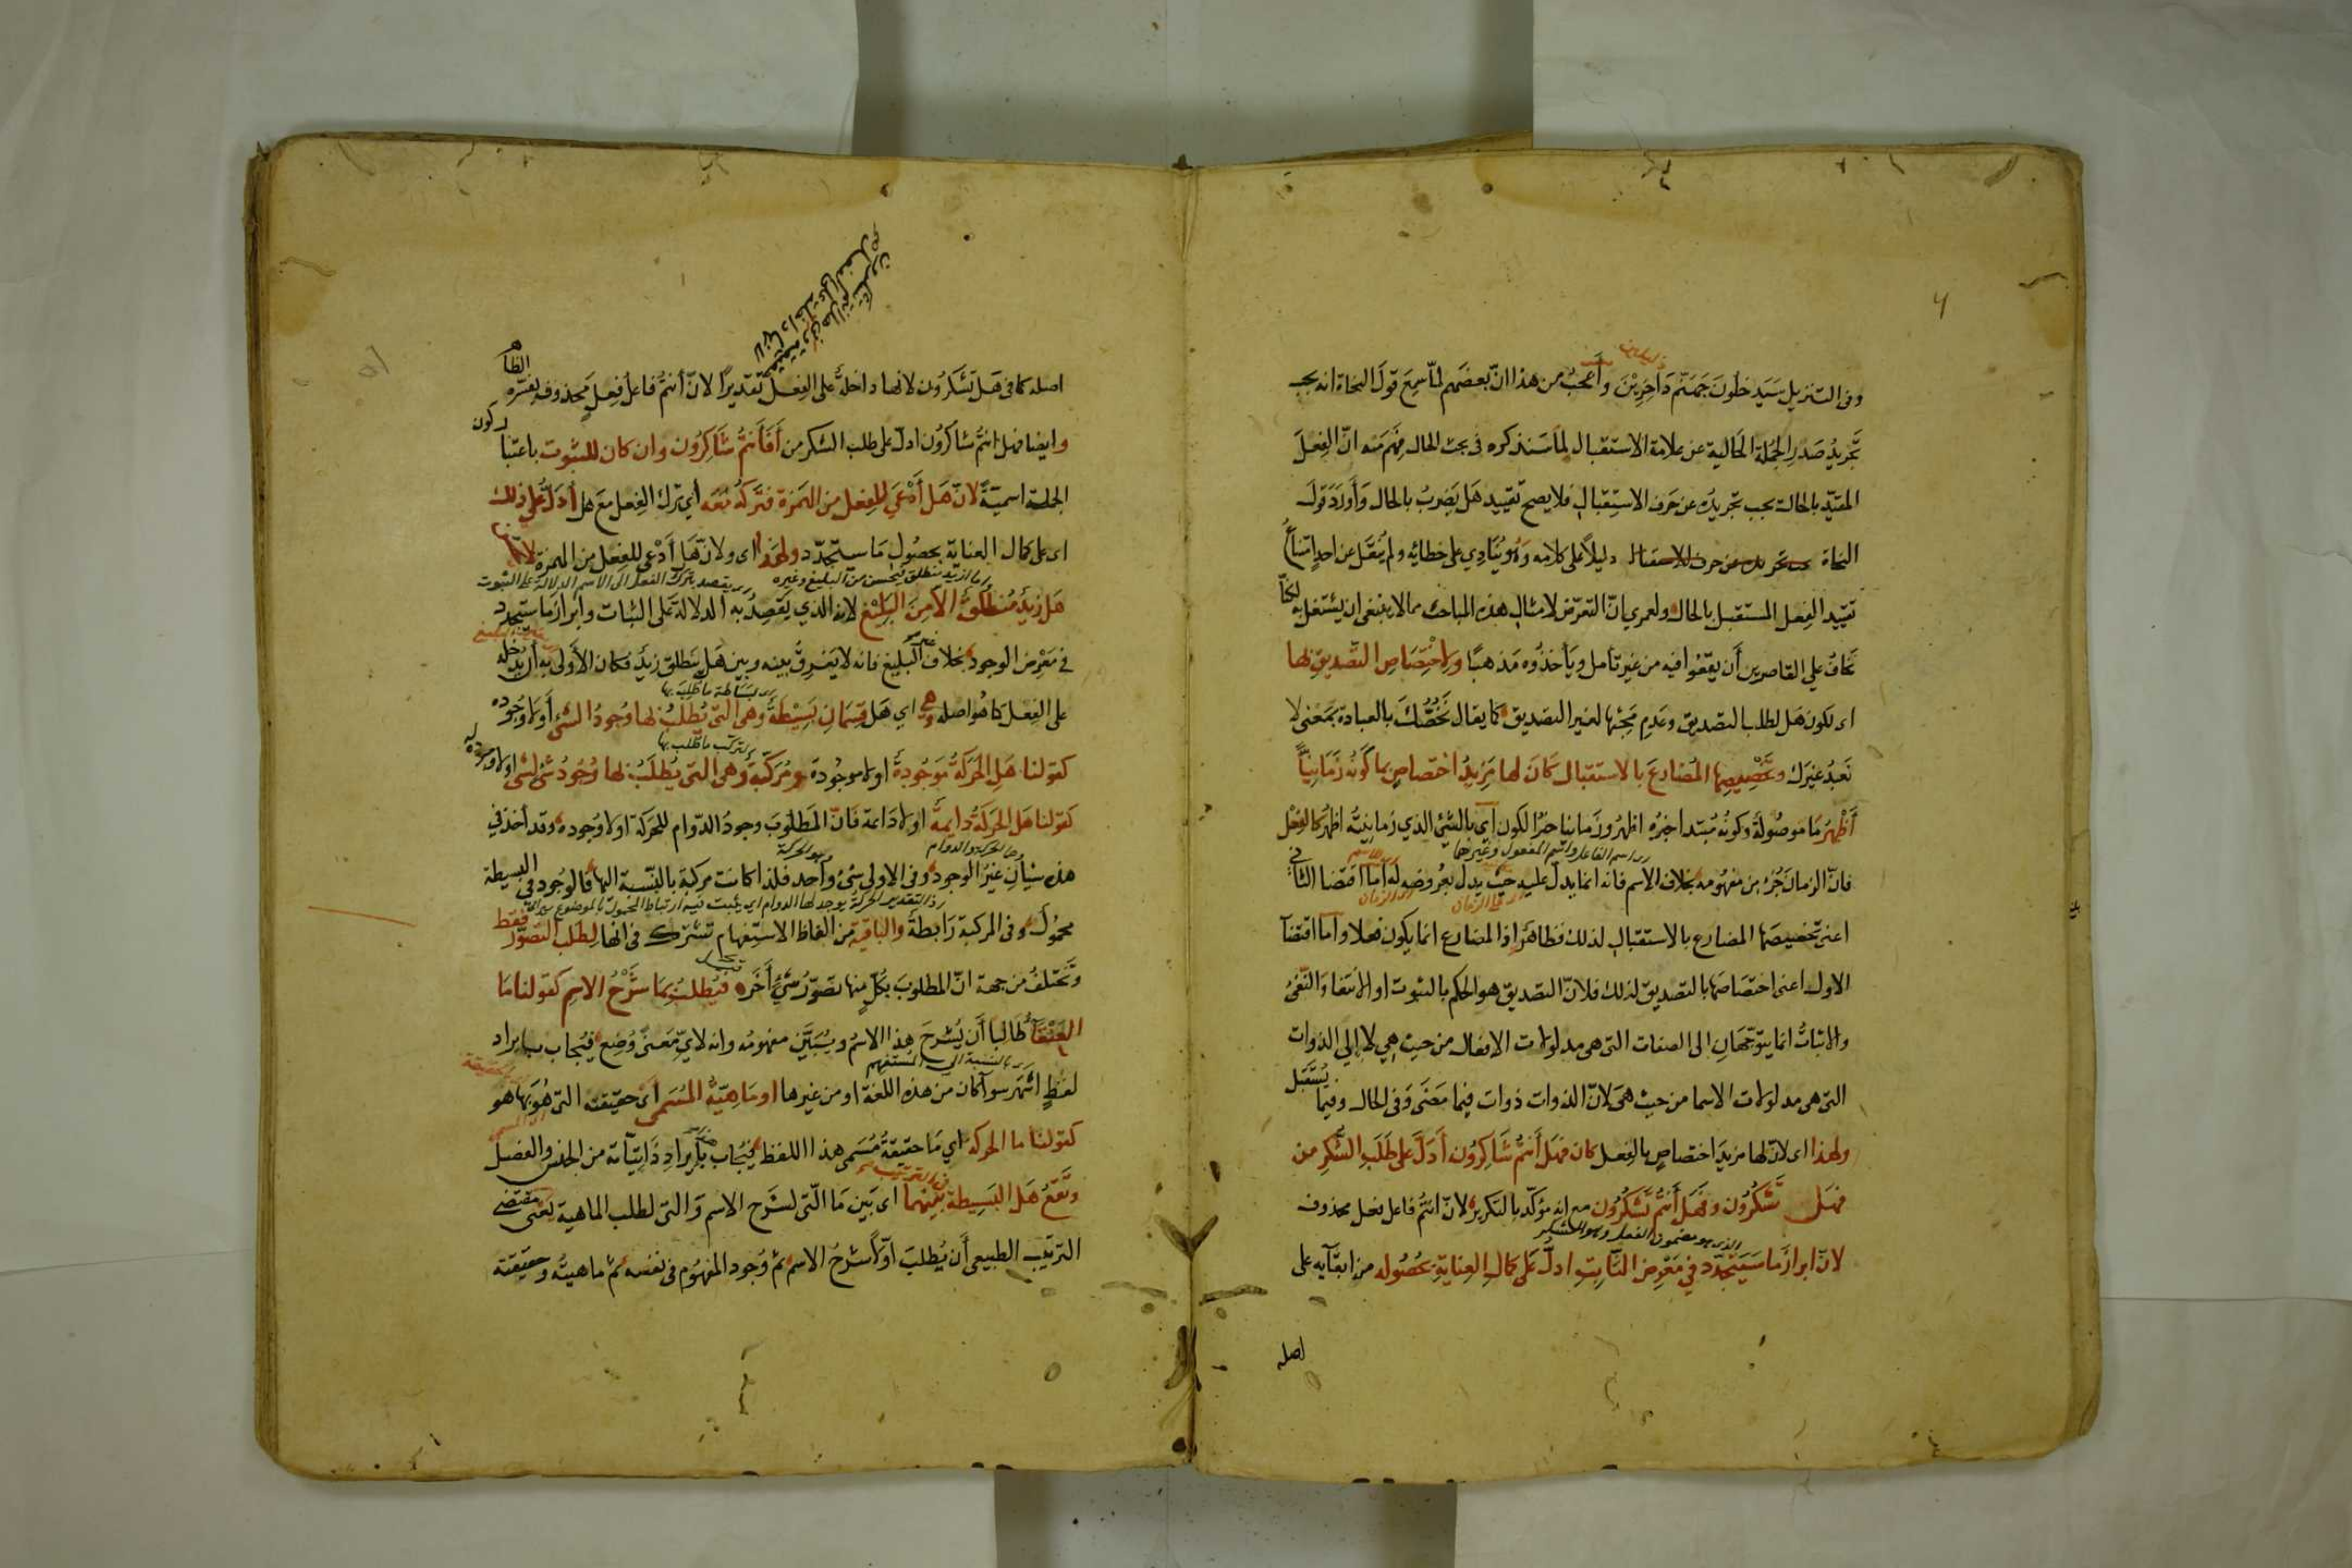 وفى التنزيل سَيَدخلُونَ جَهَنَّم دَاخِرِيْنَ وأَعجبُ من هذا انّ بعضَهم لمّا سَمِعَ قولَ النحاة انه يجب
تَجْريدُ صَدرِ الجُملة الحَالية عن علامة الاستقبال لما سَنذكره فى بحث الحال فَهِمَ منه انّ الفِعلَ
المقيّد بالحال يجب تجريدُه عن حَرف الاستِقبال فلا يصح تقييد هَل يَضربُ بالحال وَأَورَدَ قولَ
النحاة دليلًا على كلامه وَهُو يُنَادِي على خطائه ولم يُنقَل عن احدٍ امتناعُ
تقييد الفِعل المستقبل بالحال ولعمري انّ التعرّض لامثال هذه المباحث مما لا ينبغى ان يشتغل به لكنّا
نَخافُ على القاصرين أَن يقعُوا فيه من غير تأمل ويأخذُوه مَذهبًا ولِاختِصَاصِ التَّصديق لها
اى لكون هَل لطلب التصديق وعَدمِ مَجِئها لغير التصديق كما يقال نَخُصُّكَ بالعبادة بمَعنى لا
نَعبُدُ غيرَك وتَخْصِيصِها المُضارعَ بالاستقبال كَانَ لها مَزِيدُ اختصاصٍ بما كَونُه زَمَانِيًّا
أَظْهَرُ مَا موصُولةٌ وكونُه مُبتدا خبرُه اظهرُ وزَمانيا خبرٌ لكون أي بالشئ الذي زمانيتُه اظهرُ كالفِعْل
رد اسم الفاعل واسم المفعول وغيرهما
فانّ الزمانَ جُزء من مفهُومه بخلاف الاسم فانه انما يدل عليه حَيثُ يدل بعُروضِه له أما اقتضا الثانى
اعنى تخصيصَها المضارع بالاستقبال لذلك فظاهرٌ اذ المضارع انما يكون فعلا واما اقتضآ
الاول اعنى اختصَاصَها بالتصديق لذلك فلانّ التصديق هو الحكم بالثبوت او الانتفا وَالنّفىُ
والاثباتُ انما يتوَجّهانِ الى الصفات التى هى مدلولات الافعال من حيث هِي لا إلي الذوات
التى هى مدلولات الاسما من حيث هىَ لانّ الذوات ذوات فيما مَضَى وَفى الحال وفيما يُستَقبل
ولهذا اى لانّ لها مزيدَ اختصاصٍ بالفِعل كان فهَل أَنتُم شَاكِرُون أَدَلَّ على طَلَبِ الشُّكرِ من
فهَل تَشْكُرُون وفَهَل أَنتُم تَشكُرُون مع انه مؤكّد بالتكرير لانّ انتُم فاعل فعل محذوف
الذى هو مضمون الفعل وهو الشكر
لانّ ابرازَ ما سَيَتجدّد في مَعْرِض الثَّابِتِ ادلّ عَلى كمالِ العِنايةِ بحُصُوله من ابقآيه على
اصله
لانها داخلة على الفعل
اصله كما فى هَل تَشكرُون لانها داخلةٌ على الفِعل تقديرًا لانّ أنتُم فاعلُ فِعلٍ محذوف يُفسّره الظاهر
وايضا فهل انتُم شاكرُون ادلّ على طلب الشكر من أَفَأَنتُم شَاكِرُون وان كان للثبوت باعتبار كون
الجملة اسميّةً لانّ هَل أَدْعَى للفِعل من الهمزة فتَركُه مَعَه أي تَرك الفِعل مَعَ هل أدَلُّ على ذلك
اى على كمال العناية بحصُولِ مَا سيتجدّد ولهَذا اى ولانّ هَل أَدْعى للفِعل من الهمزة لا يحسن
هَل زيدٌ مُنطَلِقٌ الّا مِنَ البَلِيْغ لانه الذي يَقصِدُ به الدلالةَ على الثبات وابراز ما ستجدد
في مَعْرِض الوجود بخلاف غير البليغ فانه لا يَفرِقُ بينه وبين هَل يَنطلق زيدٌ فكان الأَولى به أن يُدخله
على الفِعل كما هُو اصله وهى اي هَل قِسمَانِ بَسِيْطةٌ وَهى التى يُطلَبُ بها وُجودُ الشئ أو لا وُجُوده
رد لبساطة ما طلب بها
كقولنا هَلِ الحَركةُ مَوجُودةٌ او لا موجُودة ومُركّبةٌ وَهى التى يُطلَبُ بها وُجُودُ شئ لشئ او لا وجوده له
لتركب ما طلب بها
كقولنا هَل الحَركةُ دايمةٌ او لا دَائمة فانّ المطلوبَ وجودُ الدّوام للحَركة او لا وُجوده وقد أُخذ في
وهما الحركة والدوام
هذه شيأنِ غيرُ الوجود وفى الاولى شئ واحد فلذا كانت مركبة بالنّسبة اليها فالوُجود فى البسيطة
محمُولٌ وفى المركبة رَابطةٌ والباقيةُ من الفاظ الاستفهام تشترك فى انها لِطلَب التصوّر فقط
وتَختلفُ من جهة انّ المطلوبَ بكلٍّ منها تصوّرُ شئٍ أخَر فيُطلبُ بمَا شَرْحُ الاسم كقولنا مَا
العَنْقَآءُ طَالِبا أَن يُشرحَ هذا الاسمُ ويُبَيَّن مفهومُه وانه لايِّ مَعنىً وُضِع فيُجاب بايراد
لفظٍ اشهَر سوآ كان من هذه اللغة او من غيرها او مَاهِيّةُ المُسَمى أي حقيقته التى هُوَ بها هو
كقولنا ما الحركه أي مَا حقيقةُ مُسَمى هذا اللفظ فيُجاب بإيرادِ ذَاتِيّاته من الجنس والفصل
وتَقعُ هَل البَسِيطة بَيْنَهما اى بَين مَا الّتى لشَرح الاسم وَالتى لطلب الماهية يَعنى مقتضى
الترتيب الطبيعى أَن يُطلبَ اوّلًا شرحُ الاسم ثم وُجود المفهُوم فى نفسه ثم ماهيتُه وحقيقته